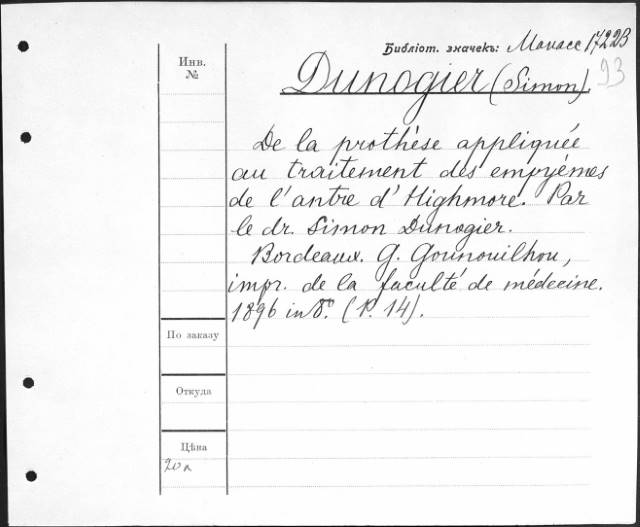 Библіот. значекъ: Манасс 1722В
93
Инв.
№
Dunogier (Simon).
De la prothèse appliquée
au traitement des empyémes
de l'antre d'Highmore. Par
le dr. Simon Dunogier.
Bordeaux. G. Gounouilhou,
impr. de la faculté de médecine.
1896 in 8°. (P. 14).
По заказу
Откуда
Цѣна
20 к